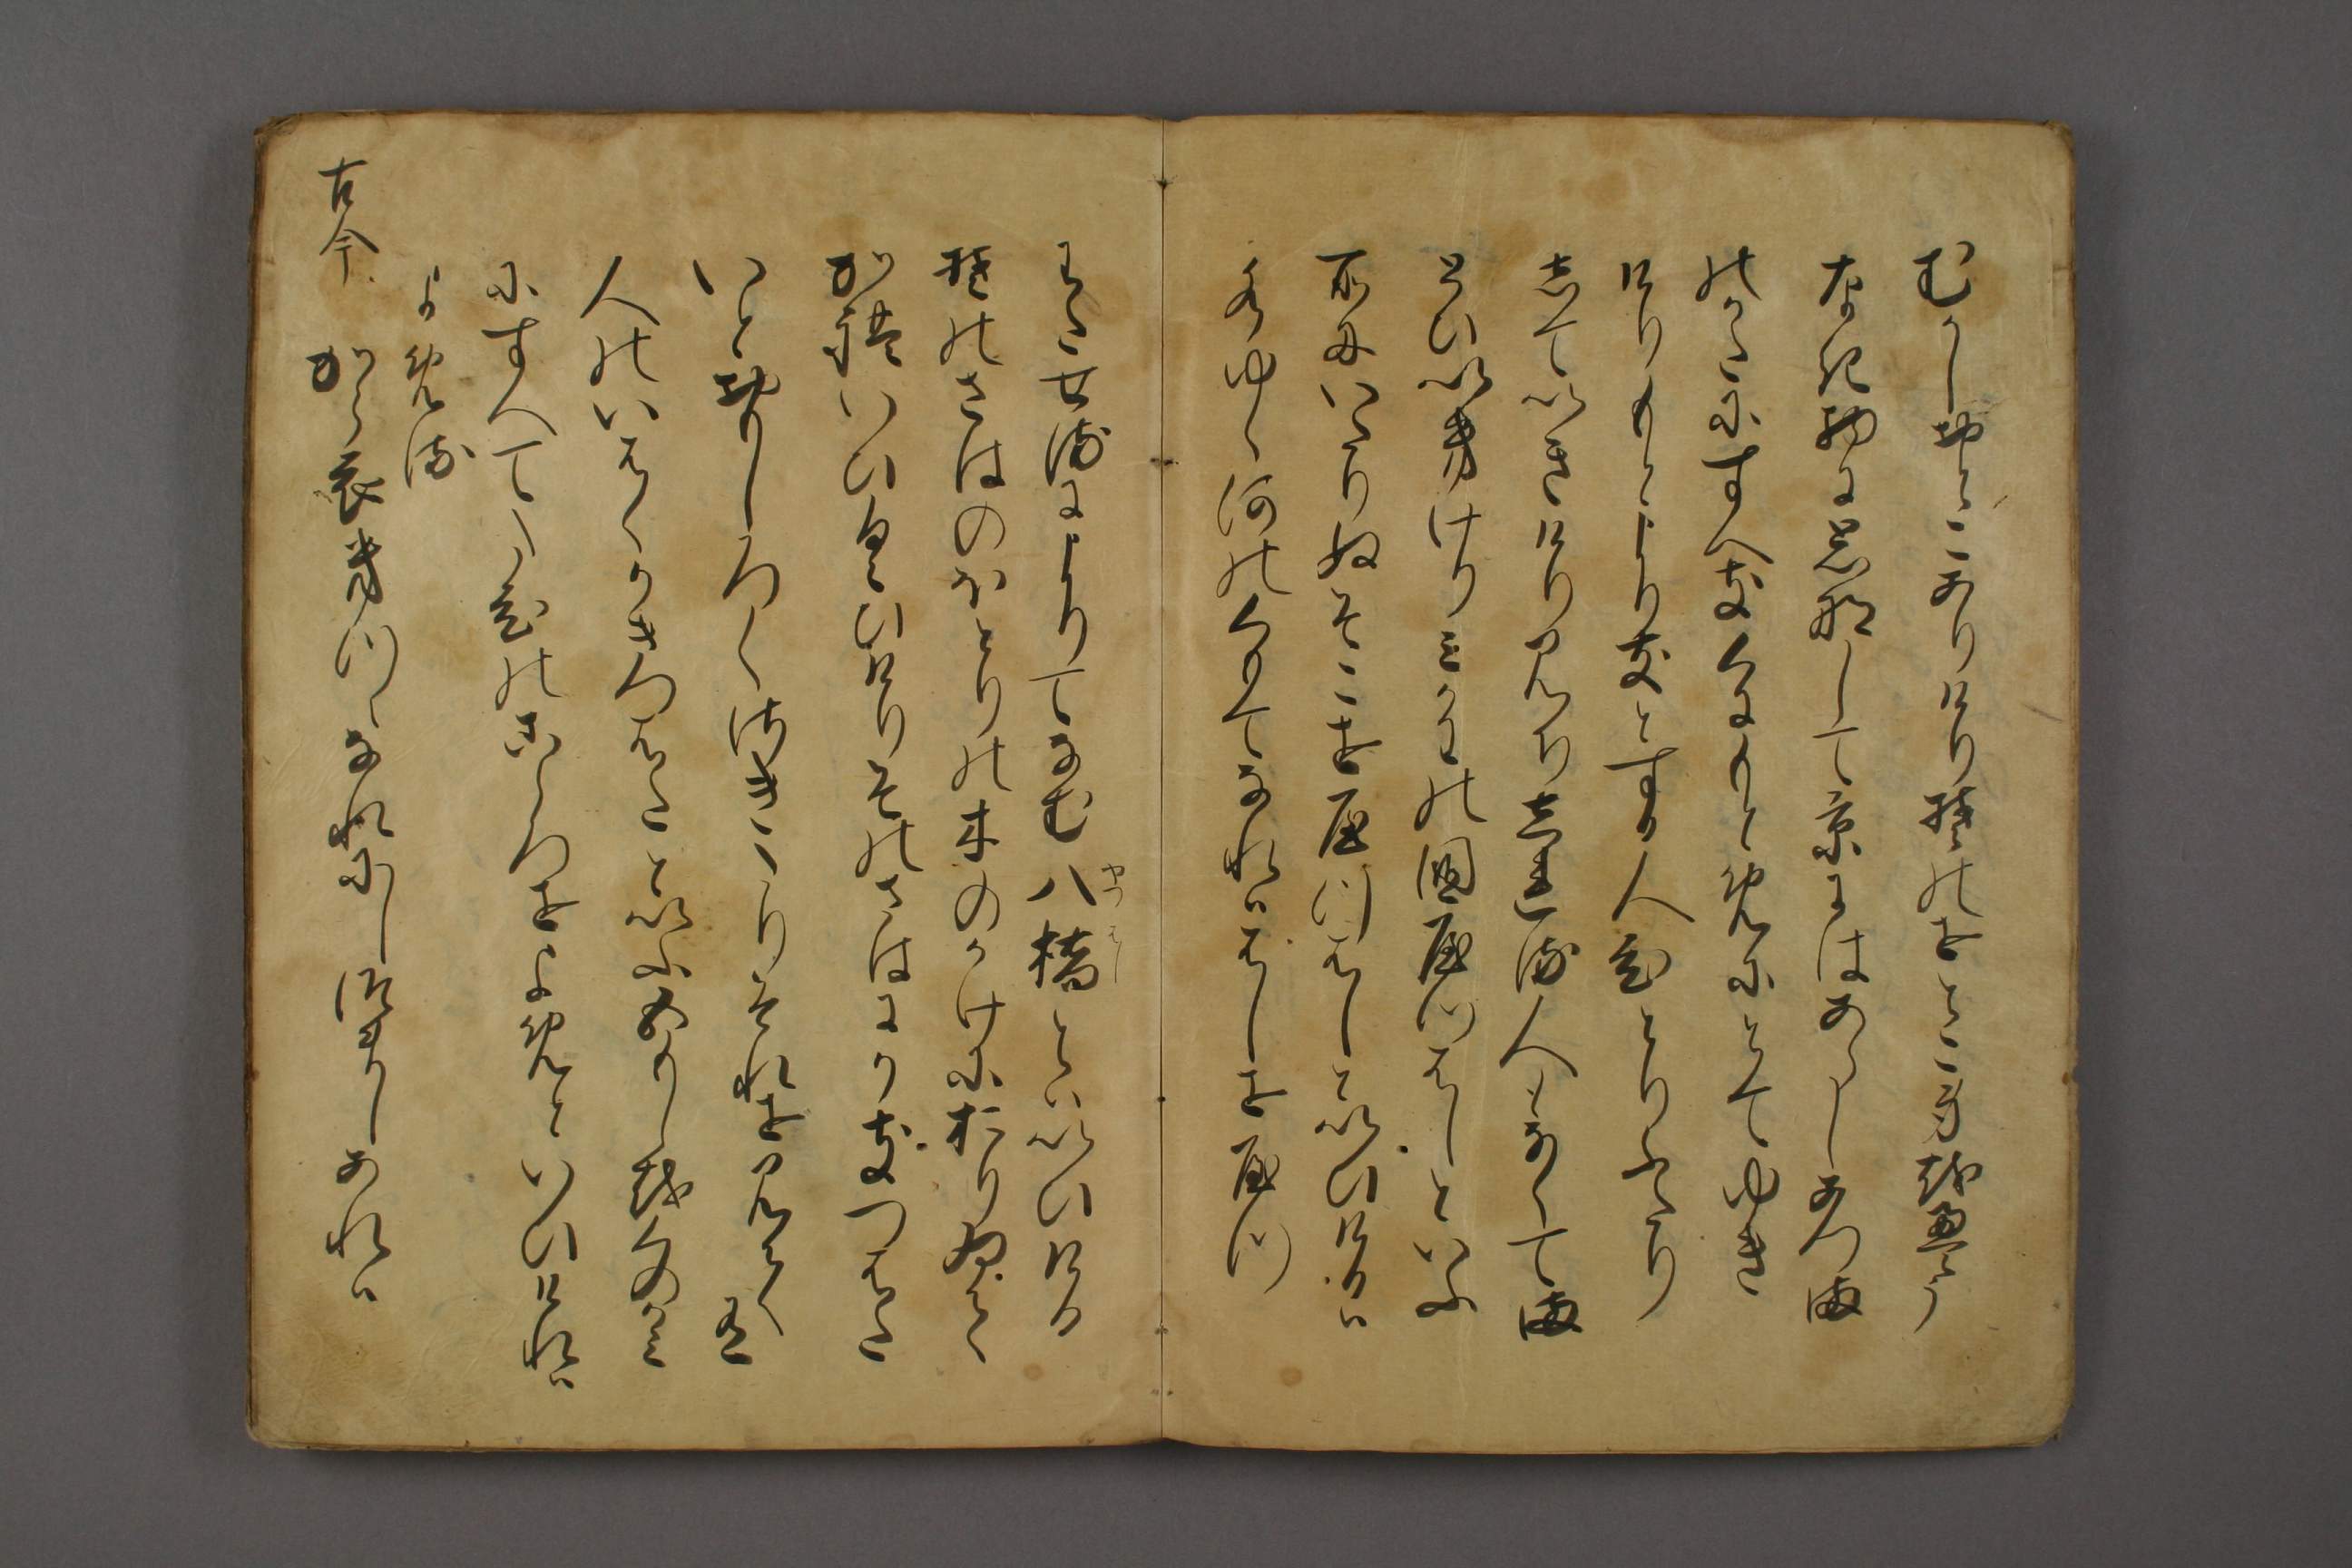 むかしおとこありけりそのをとこ身をえう
なき物に思なして京にはあらしあつま
のかたにすへきくにもとめにとてゆき
けりもとより友とする人ひとりふたり
していきけりみちしれる人もなくてま
とひいきけりみかはの国やつはしといふ
所にいたりぬそこをやつはしといひけるは
水ゆく河のくもてなれははしをやつ
わたせるによりてなむ八橋といひける
やつはし
そのさはのほとりの木のかけにおりゐて
かれいひくひけりそのさはにかきつはた
いとおもしろくさきたりそれを見てある
人のいはくかきつはたといふいつもしをくのかみ
にすへてたひのこゝろをよめといひけれは
よめる
古今
から衣きつゝなれにしつましあれは